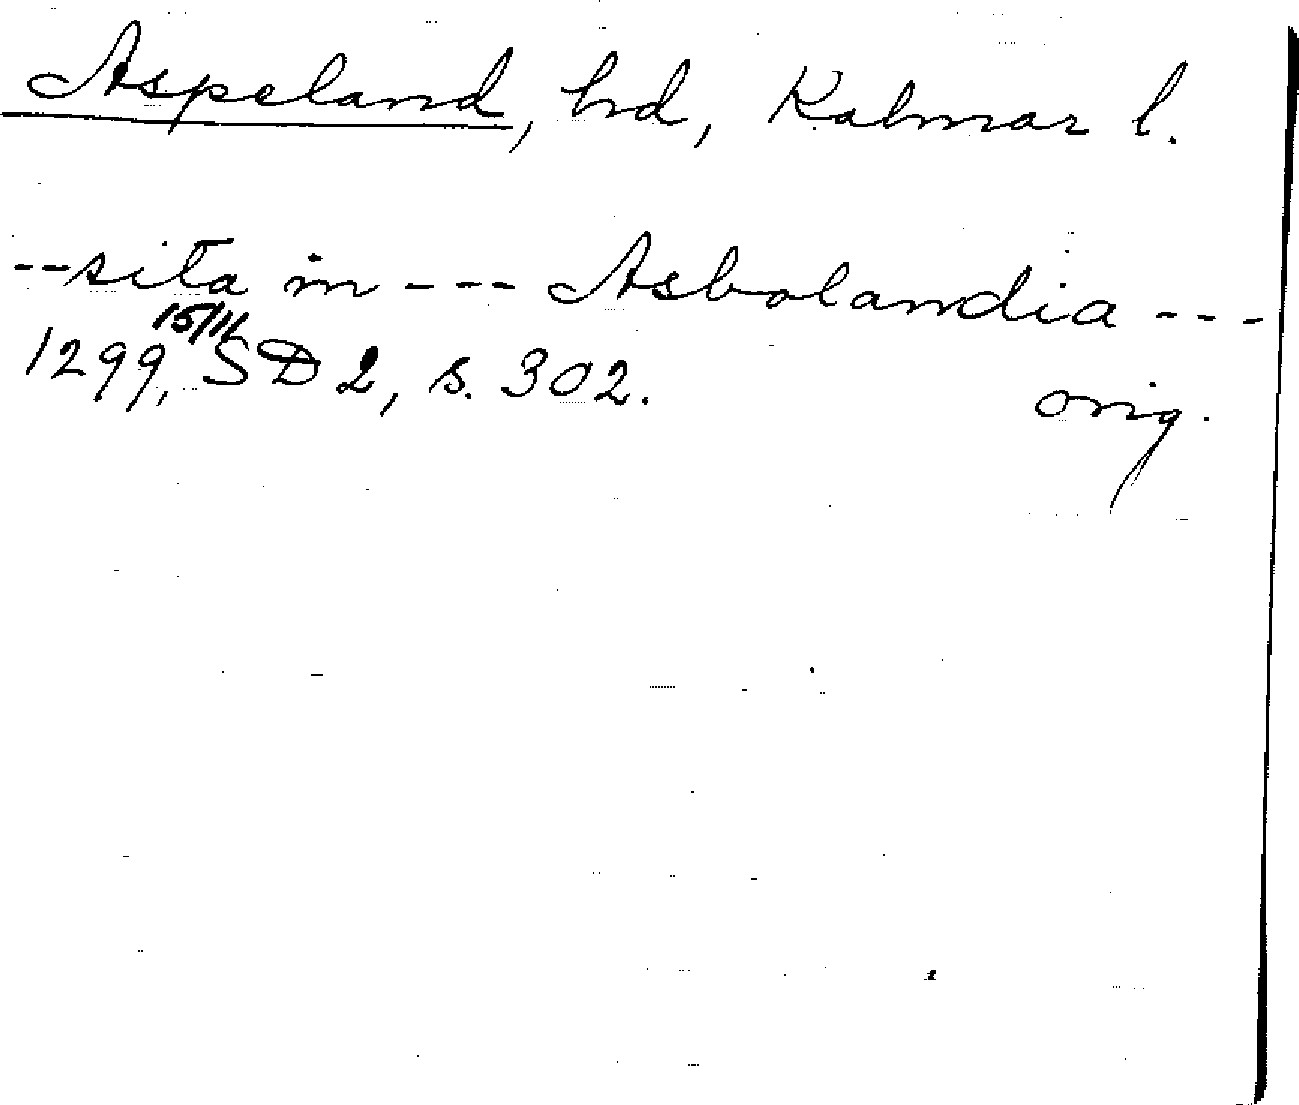 Aspeland, hd, Kalmar l.
--sita in --- Asbolandia ---
1299, 15/11 SD 2, s. 302.
orig.